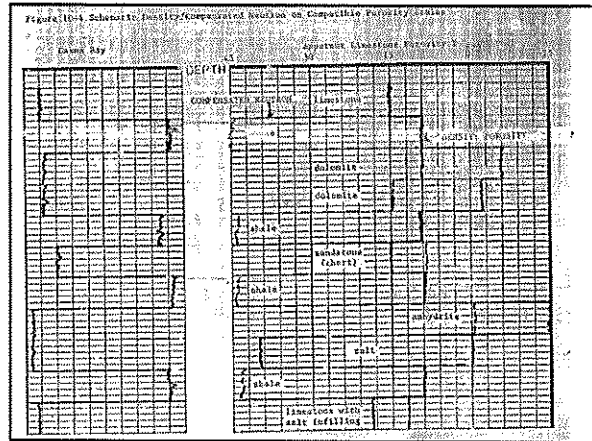 Figure 10-4 Schematic Density/Compensated Neutron on Compatible Porosity Scales
Gamma Ray
Apparent Limestone Porosity
DEPTH
COMPENSATED NEUTRON
limestone
DENSITY POROSITY
dolomite
dolomite
shale
sandstone
(chert)
shale
anhydrite
salt
shale
limestone with
salt infilling